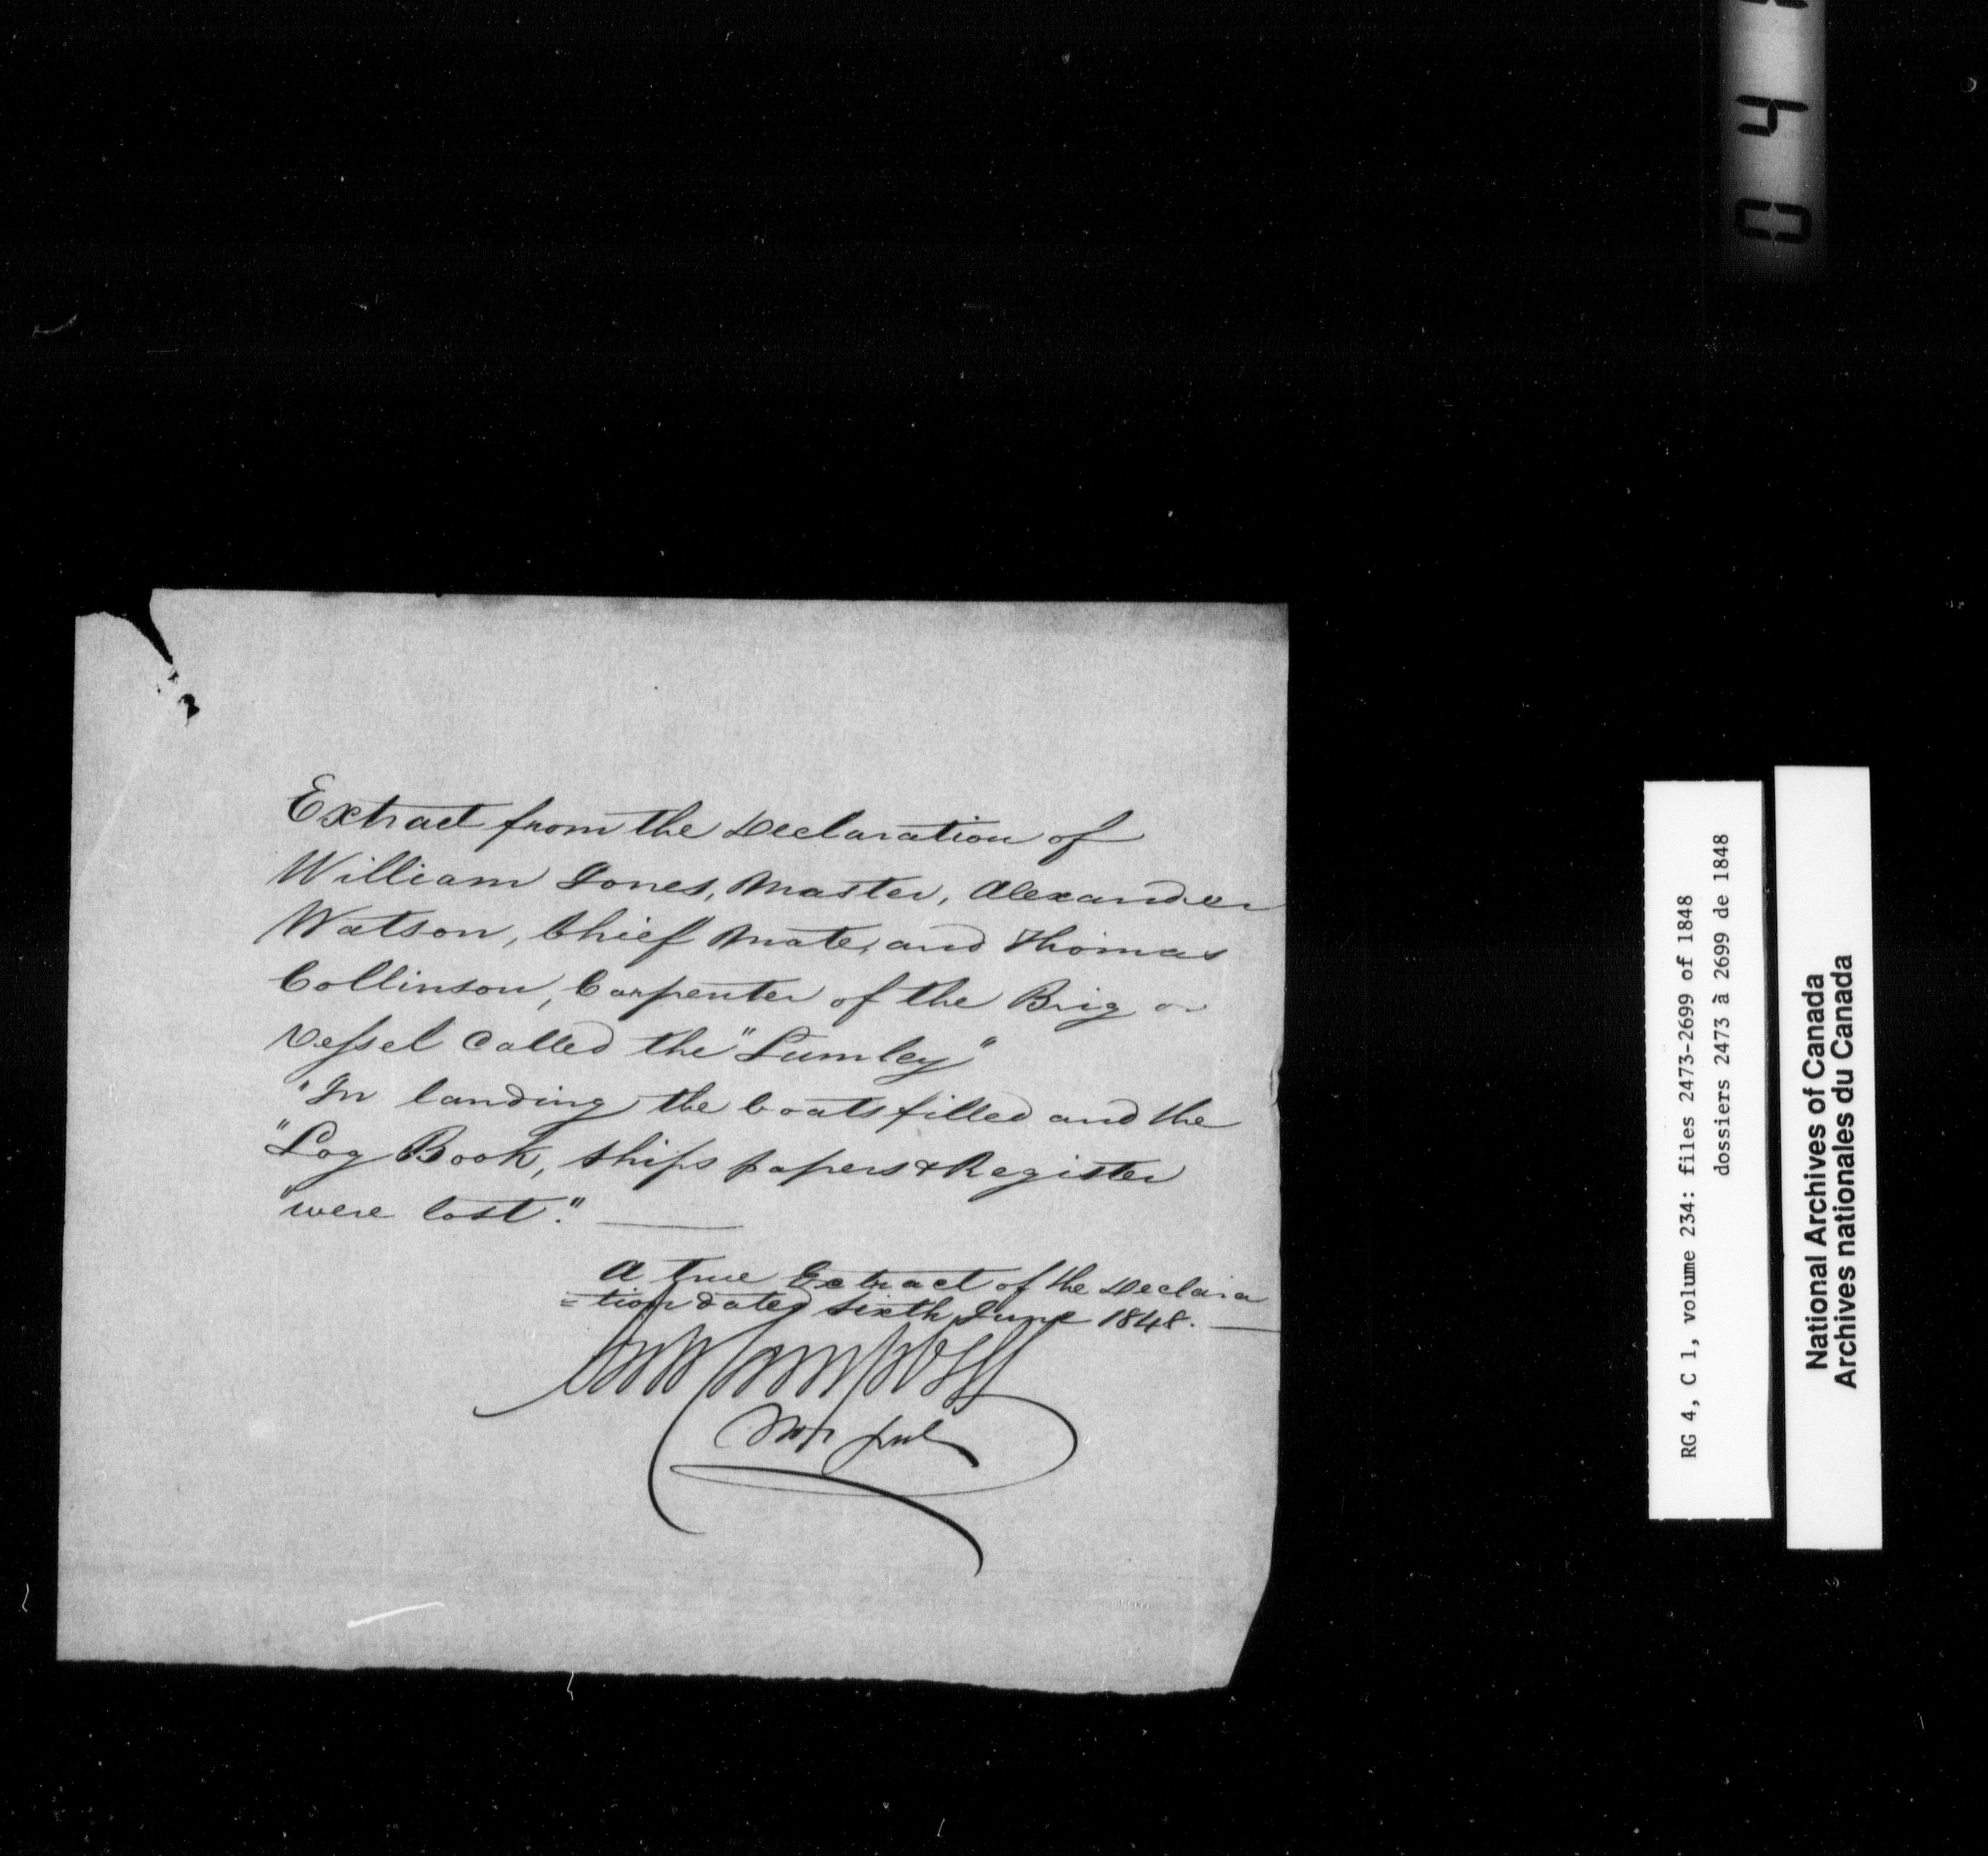 Extract from the Declaration of
William Jones, Master, Alexander
Watson, Chief Mate, and Thomas
Collinson, Carpenter of the Brig or
Vessel Called the "Lumley"
"In landing the boats filled and the
"Log Book, ships papers & Register
"were lost."
A True Extract of the Declara
=tion dated sixth June 1848.
Campbell
RG 4, C 1, volume 234: files 2473-2699 of 1848
dossiers 2473 à 2699 de 1848
National Archives of Canada
Archives nationales du Canada
0 4